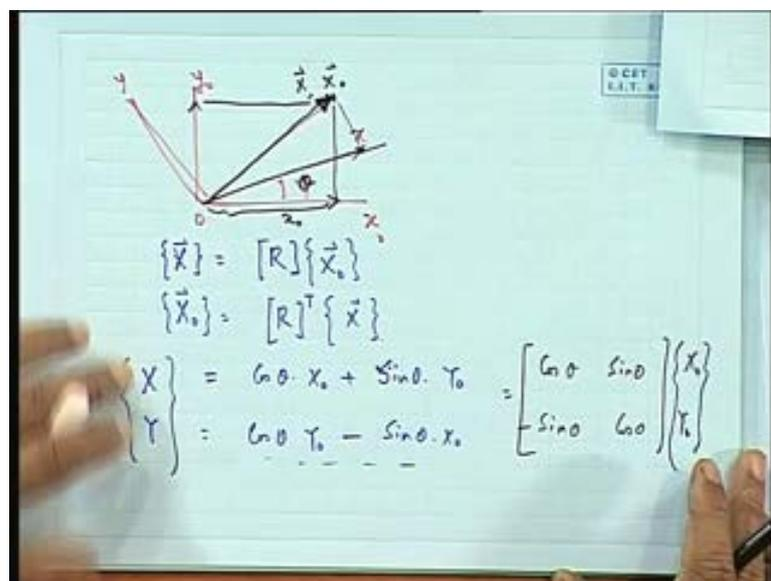 © CET
I.I.T.
y y₀ X⃗, X⃗₀
x
θ
O x₀ x₀
{X⃗} = [R]{X⃗₀}
{X⃗₀} = [R]ᵀ{X⃗}
{X = Cos θ · X₀ + Sin θ · Y₀ = [Cos θ Sin θ]{X₀}
{Y = Cos θ Y₀ − Sin θ · X₀ [−Sin θ Cos θ]{Y₀}